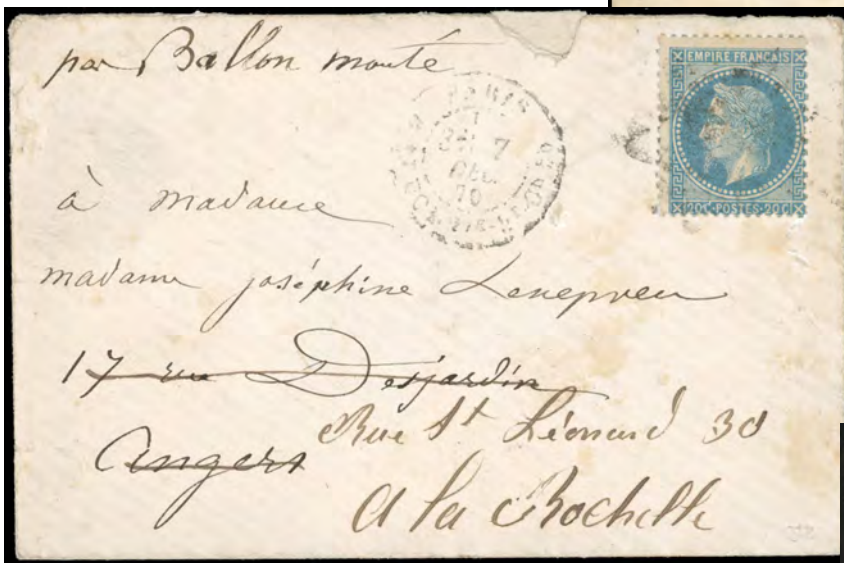 par Ballon monté
PARIS
7
DEC
70
EMPIRE FRANCAIS
20c POSTES 20c
à madame
madame joséphine Lenepveu
17 rue Desjardin
Angers
Rue St Léonard 30
A la Rochelle